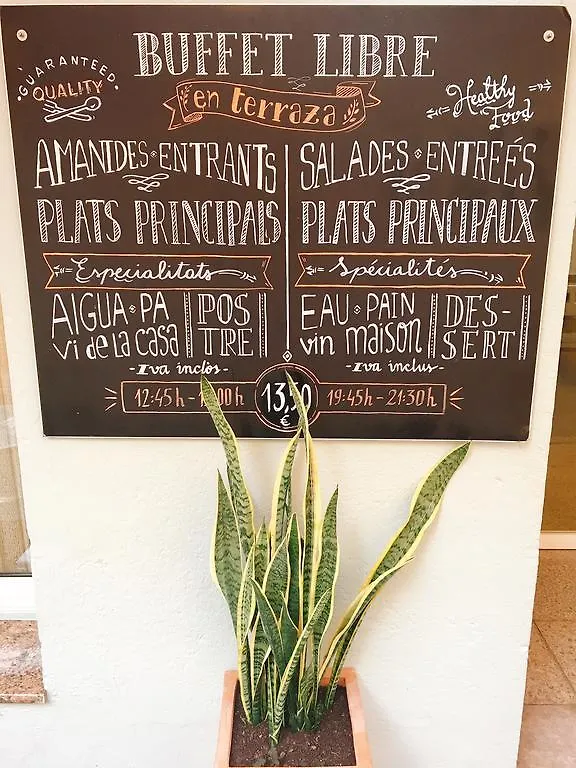 BUFFET LIBRE
GUARANTEED
QUALITY
en terraza
Healthy
Food
AMANIDES · ENTRANTS
PLATS PRINCIPALS
Especialitats
AIGUA · PA
Vi de la casa
POS
TRE
-Iva inclòs-
SALADES · ENTREÉS
PLATS PRINCIPAUX
Spécialités
EAU · PAIN
vin maison
DES-
SERT
-Iva inclus-
12:45h -
00h
13,50
€
19:45h - 21:30h